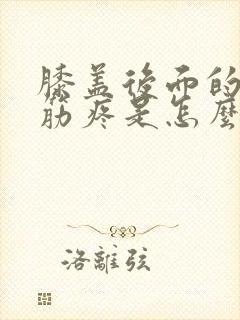 膝盖後面的
筋疼是怎麼
洛離弦